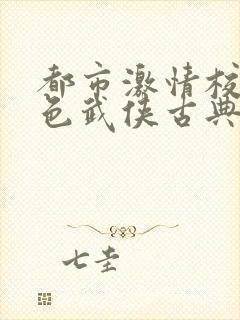 都市激情校
色武侠古典
七圭